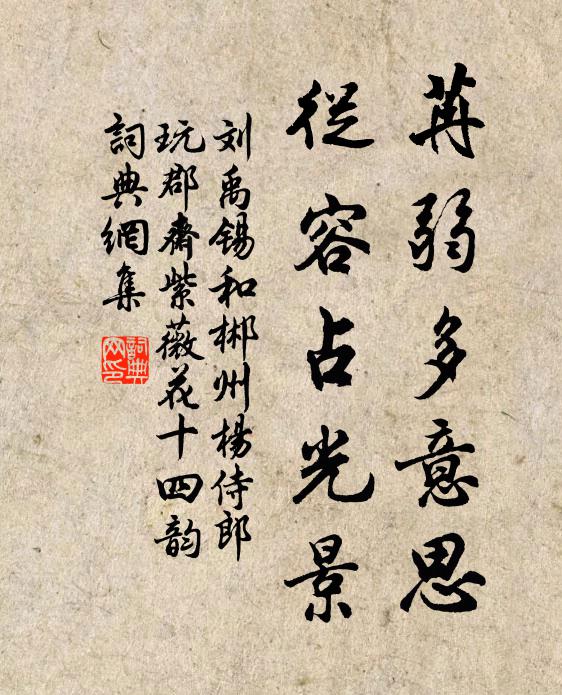 苒弱多意思
從容占光景
刘禹锡和郴州楊侍郎
玩郡齋紫薇花十四韵
詞典網集
詞典
网印